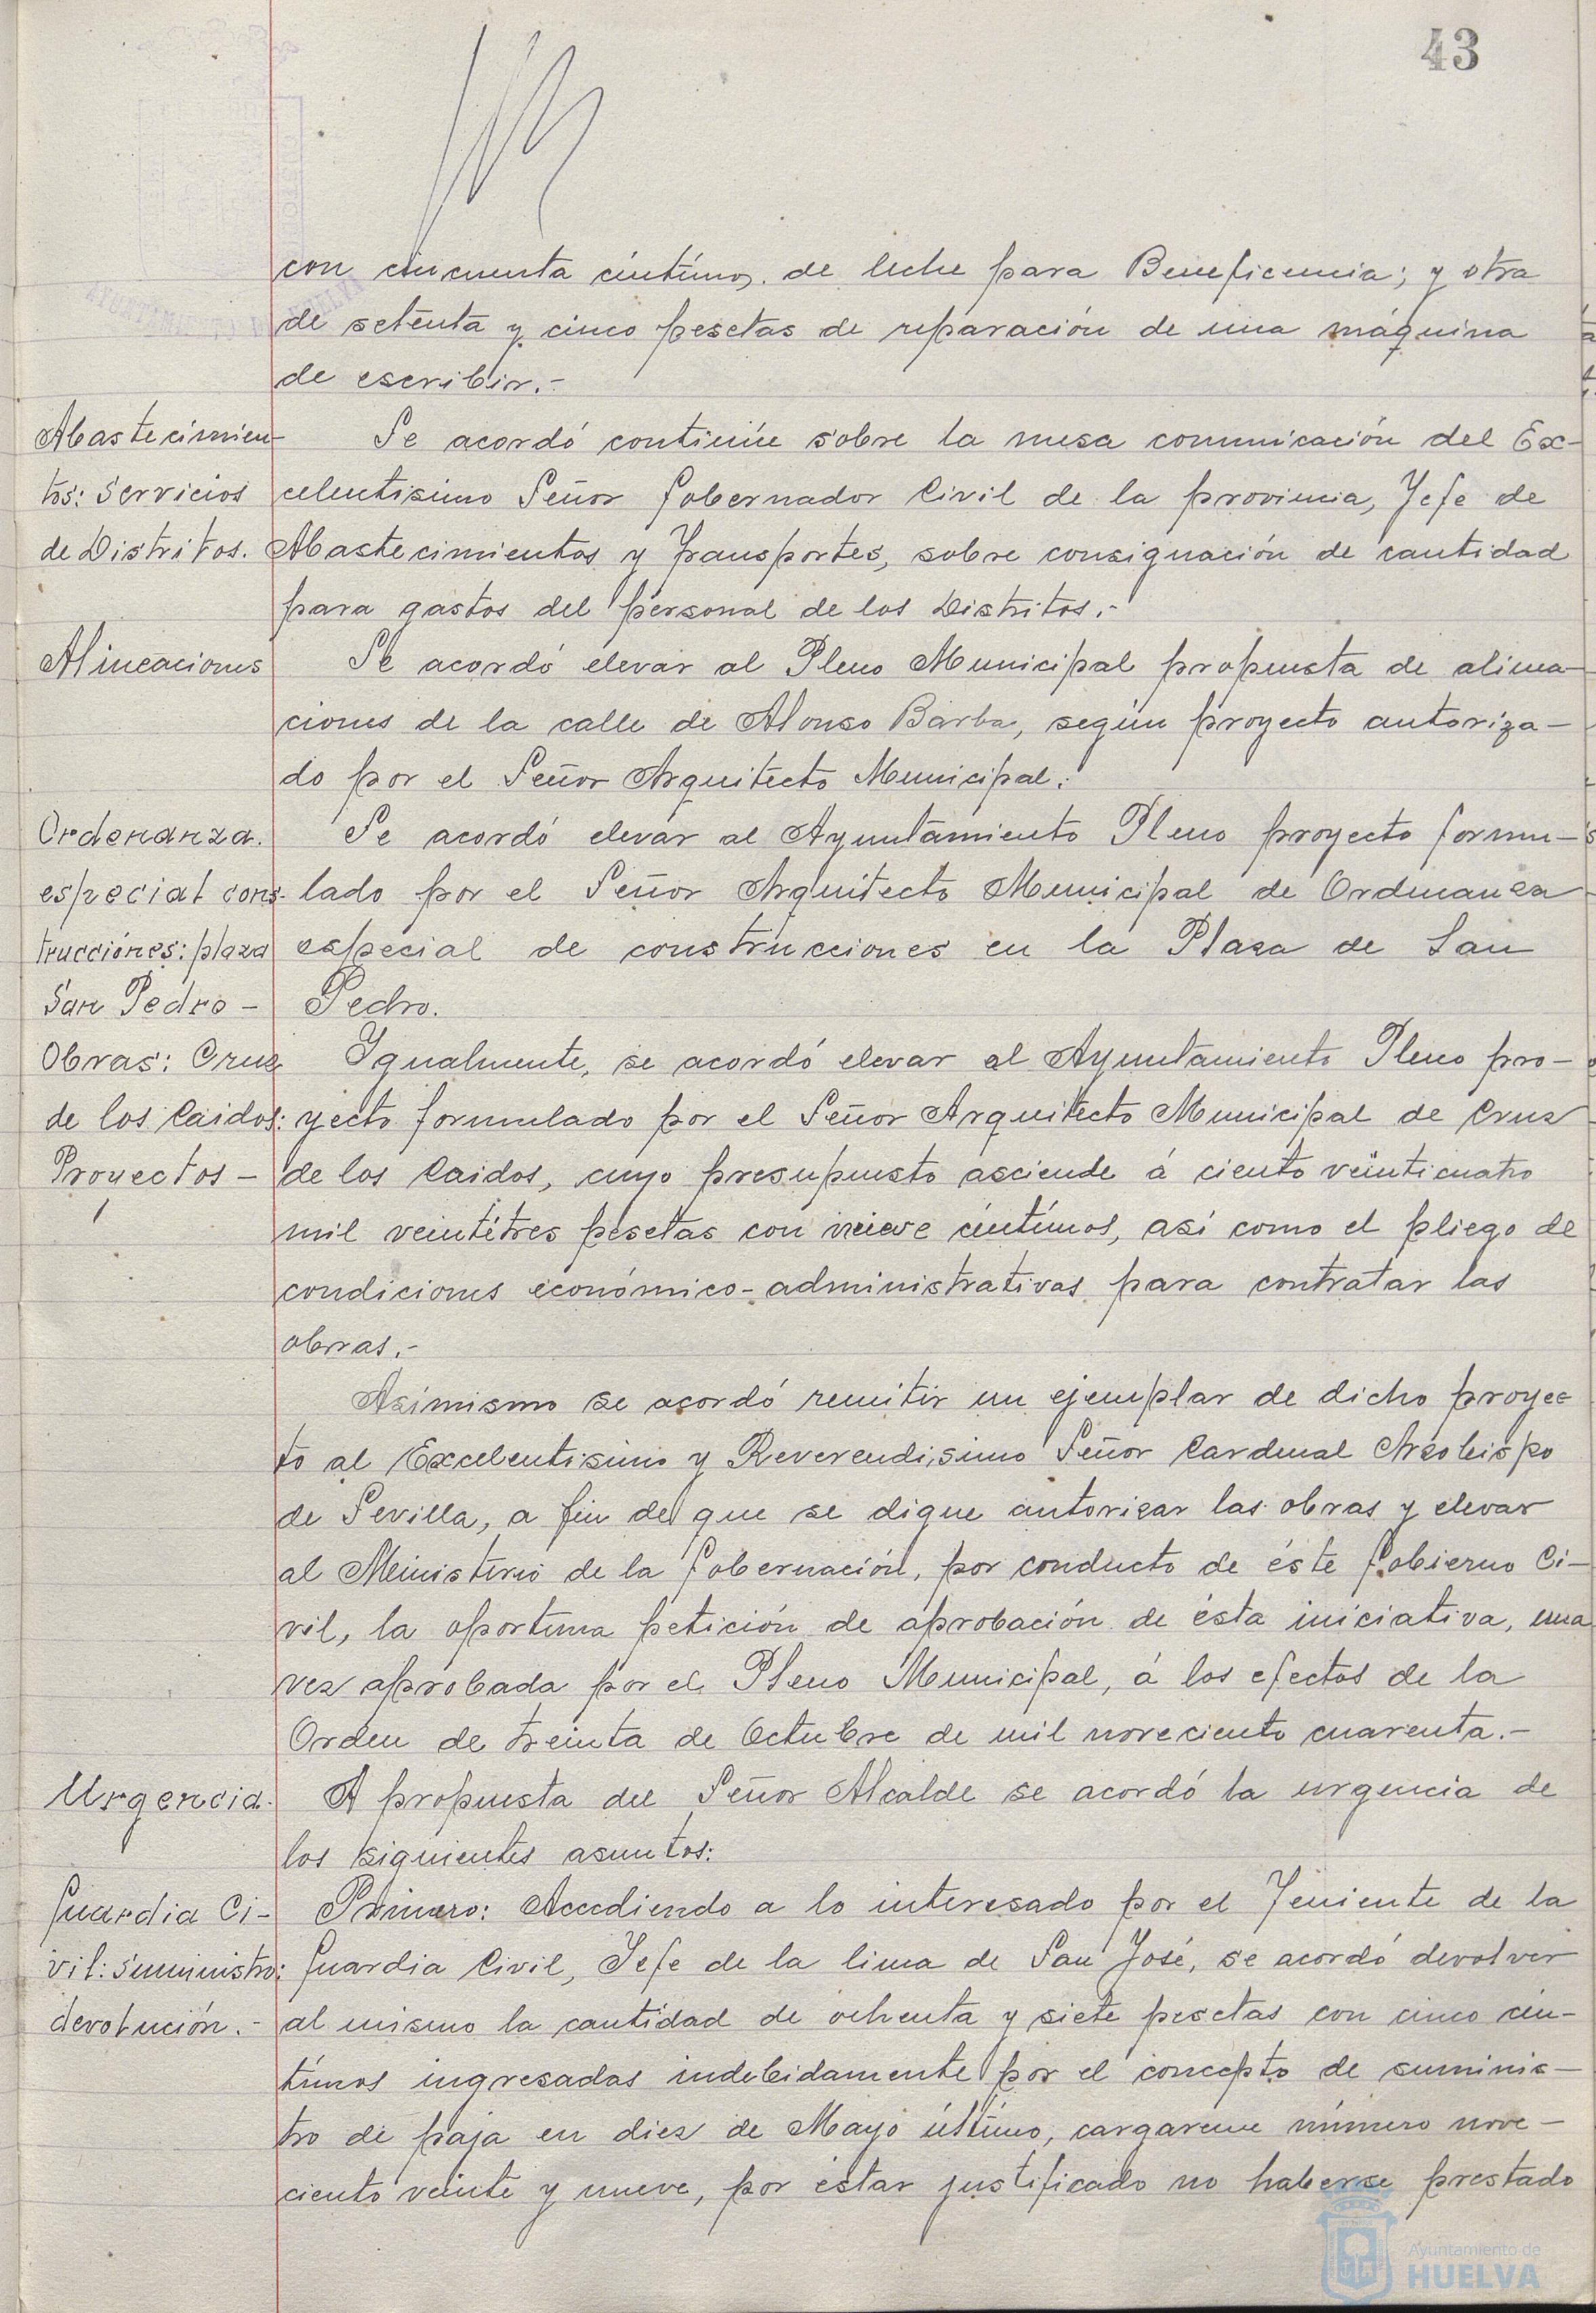 43
con cincuenta céntimos de leche para Beneficencia; y otra
de setenta y cinco pesetas de reparación de una máquina
de escribir.-
Abastecimien-
tos: Servicios
de Distritos.
Se acordó continúe sobre la mesa comunicación del Ex-
celentisimo Señor Gobernador Civil de la provincia, Jefe de
Abastecimientos y Transportes, sobre consignación de cantidad
para gastos del personal de los Distritos.-
Alineaciones
Se acordó elevar al Pleno Municipal propuesta de alinea-
ciones de la calle de Alonso Barba, según proyecto autoriza-
do por el Señor Arquitecto Municipal.-
Ordenanza
especial cons-
trucciónes: plaza
San Pedro -
Se acordó elevar al Ayuntamiento Pleno proyecto formu-
lado por el Señor Arquitecto Municipal de Ordenanza
especial de construcciones en la Plaza de San
Pedro.
Obras: Cruz
de los Caidos:
Proyectos -
Igualmente, se acordó elevar al Ayuntamiento Pleno pro-
yecto formulado por el Señor Arquitecto Municipal de Cruz
de los Caidos, cuyo presupuesto asciende á ciento veinticuatro
mil veintitres pesetas con nueve céntimos, así como el pliego de
condiciones económico-administrativas para contratar las
obras.-
Asimismo se acordó remitir un ejemplar de dicho proyec-
to al Excelentisimo y Reverendisimo Señor Cardenal Arzobispo
de Sevilla, a fin de que se digne autorizar las obras y elevar
al Ministerio de la Gobernación, por conducto de éste Gobierno Ci-
vil, la oportuna petición de aprobación de ésta iniciativa, una
vez aprobada por el Pleno Municipal, á los efectos de la
Orden de treinta de Octubre de mil noveciento cuarenta.-
Urgencia.
A propuesta del Señor Alcalde se acordó la urgencia de
los siguientes asuntos:
Guardia Ci-
vil: suministro:
devolución.-
Primero: Accediendo a lo interesado por el Teniente de la
Guardia Civil, Jefe de la linea de San José, se acordó devolver
al mismo la cantidad de ochenta y siete pesetas con cinco cén-
timos ingresadas indebidamente por el concepto de suminis-
tro de paja en diez de Mayo último, cargareme número nove-
ciento veinte y nueve, por estar justificado no haberse prestado
Ayuntamiento de
HUELVA